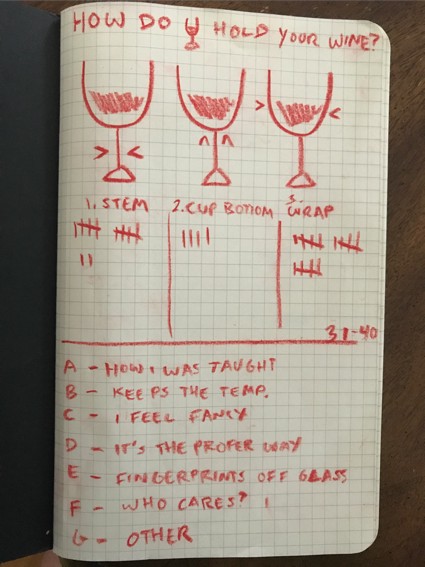 HOW DO HOLD YOUR WINE?
1. STEM 2. CUP BOTTOM 3. WRAP
31-40
A - HOW I WAS TAUGHT
B - KEEPS THE TEMP.
C - I FEEL FANCY
D - IT'S THE PROPER WAY
E - FINGERPRINTS OFF GLASS
F - WHO CARES?
G - OTHER